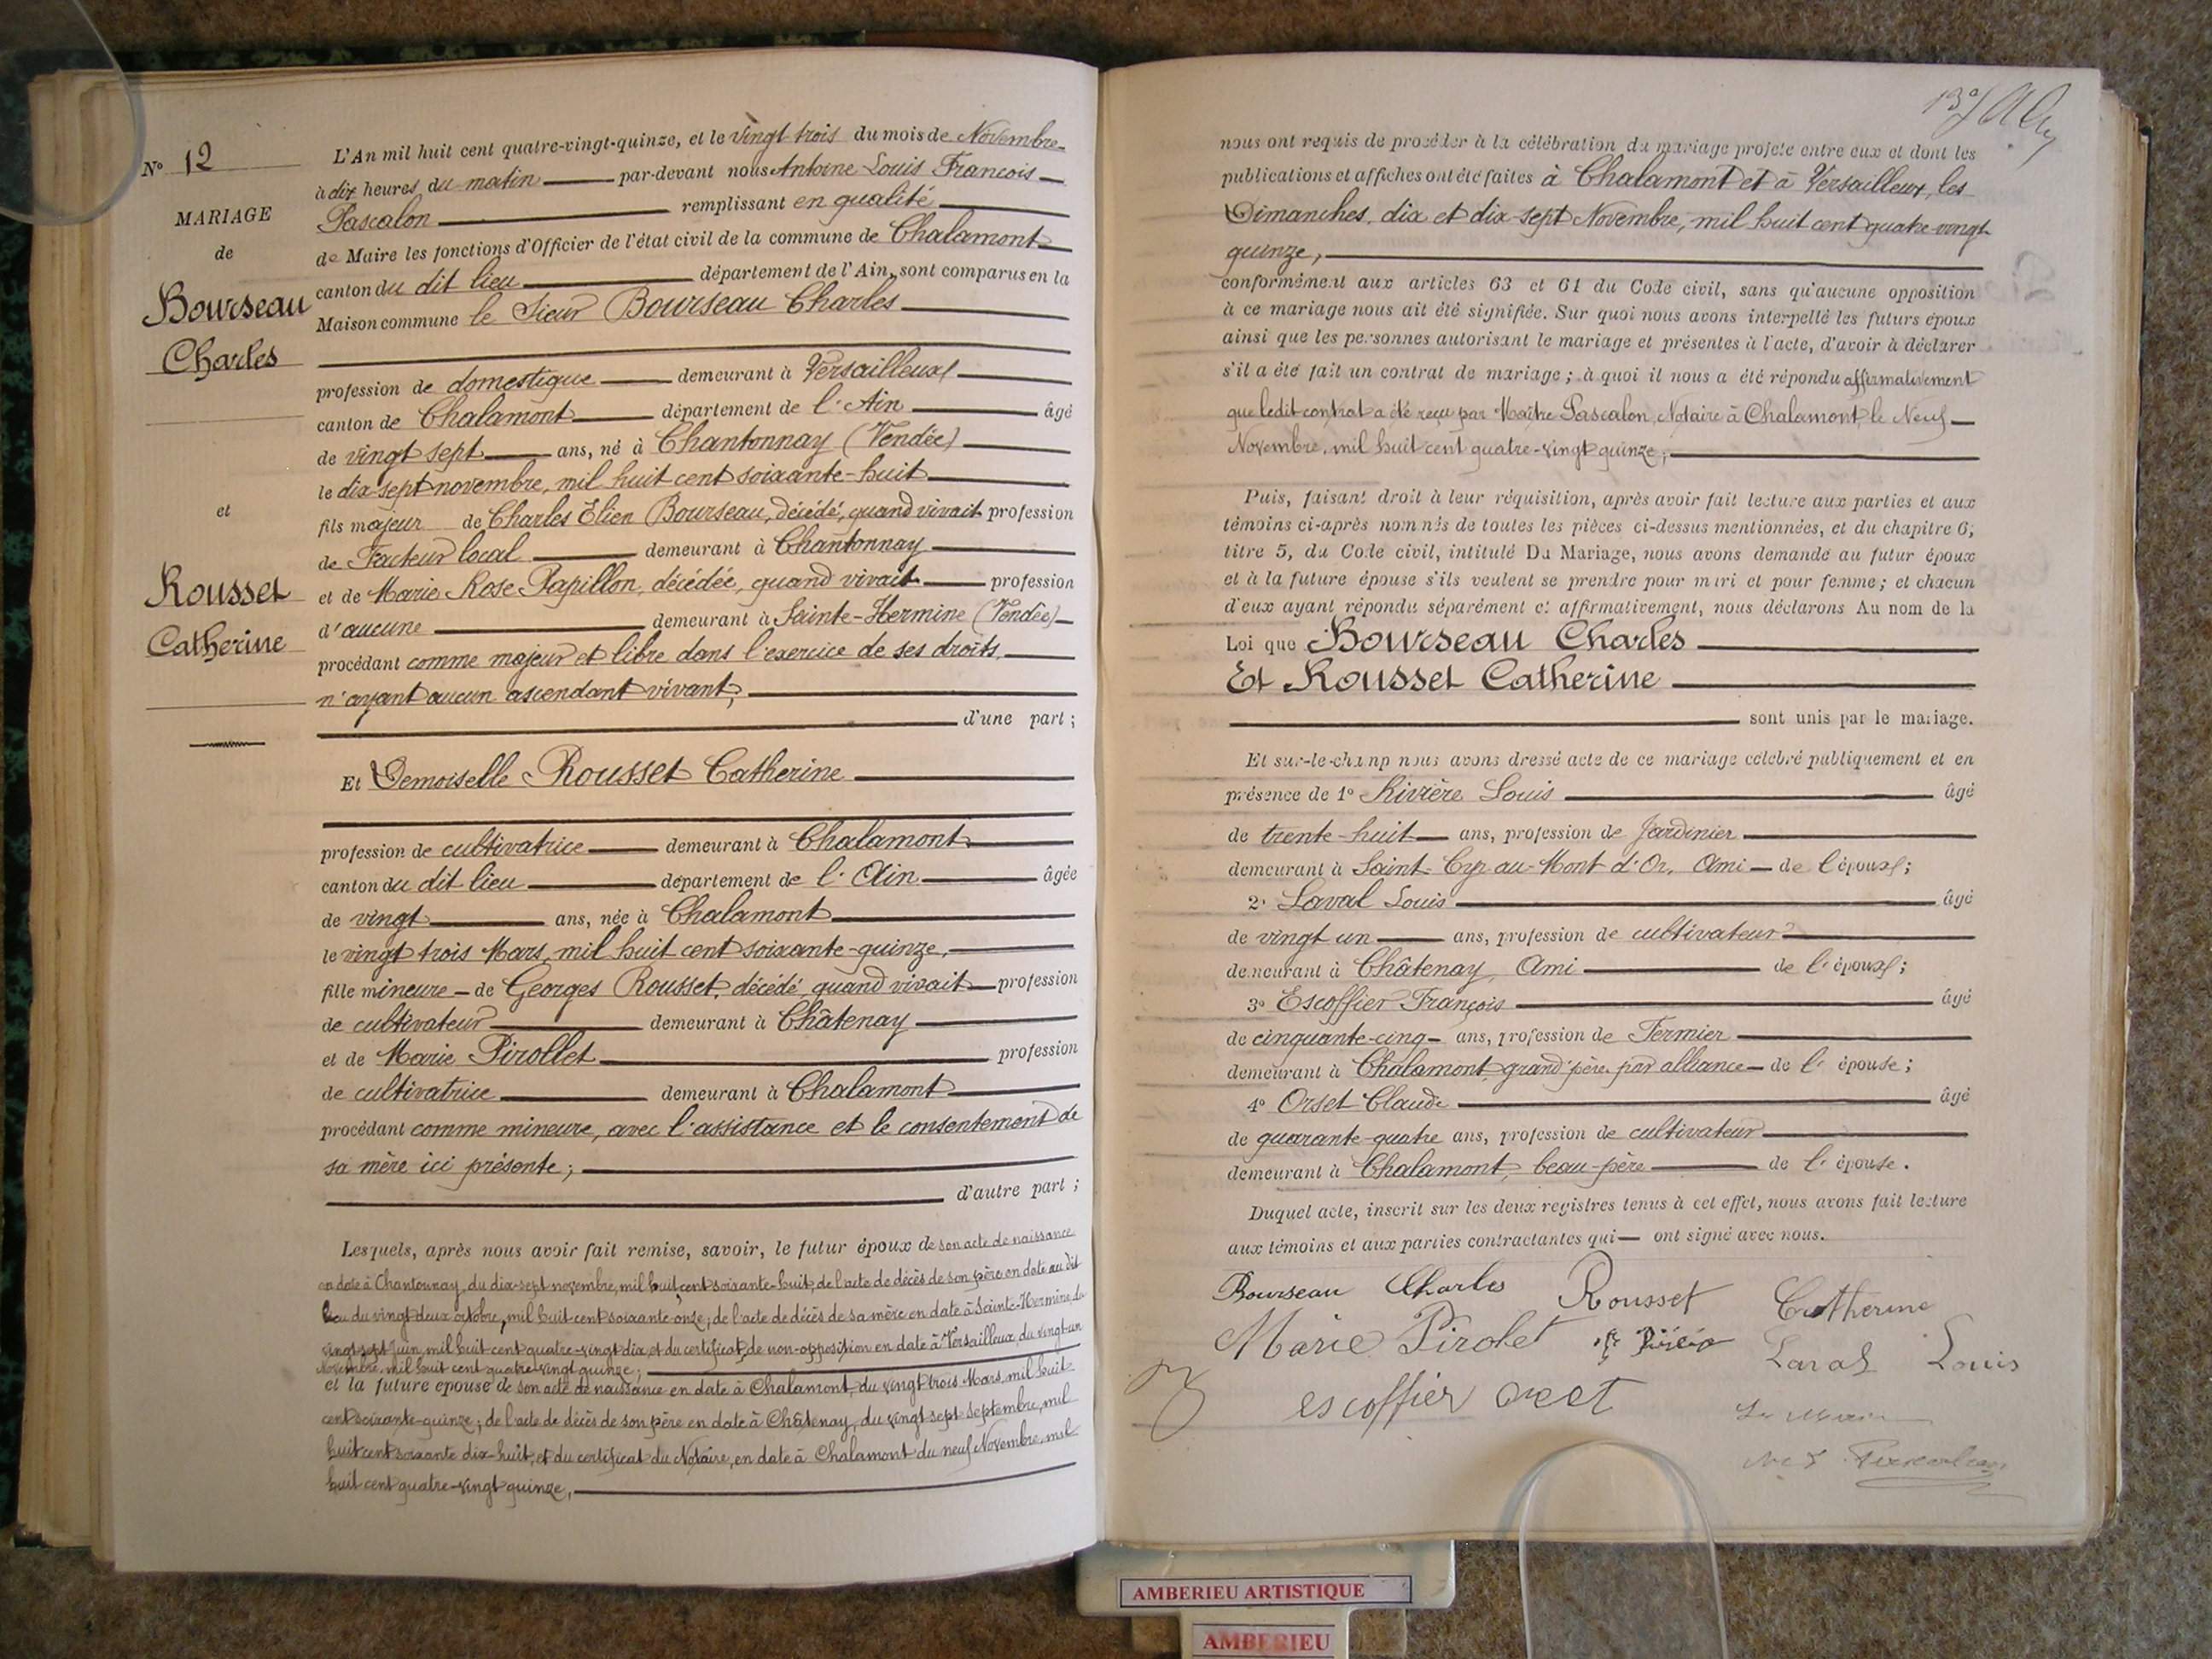 N° 12
MARIAGE
de
Bourseau
Charles
et
Rousset
Catherine
L'An mil huit cent quatre-vingt-quinze, et le vingt trois du mois de Novembre
à dix heures du matin par-devant nous Antoine Louis François
Pascalon remplissant en qualité
de Maire les fonctions d'Officier de l'état civil de la commune de Chalamont
canton du dit lieu département de l'Ain, sont comparus en la
Maison commune le Sieur Bourseau Charles
profession de domestique demeurant à Versailleux
canton de Chalamont département de l'Ain âgé
de vingt sept ans, né à Chantonnay (Vendée)
le dix-sept novembre, mil huit cent soixante-huit
fils majeur de Charles Elien Bourseau, décédé, quand vivait profession
de Facteur local demeurant à Chantonnay
et de Marie Rose Papillon, décédée, quand vivait profession
d'aucune demeurant à Sainte-Hermine (Vendée)
procédant comme majeur et libre dans l'exercice de ses droits,
n'ayant aucun ascendant vivant;
d'une part ;
Et Demoiselle Rousset Catherine
profession de cultivatrice demeurant à Chalamont
canton du dit lieu département de l'Ain âgée
de vingt ans, née à Chalamont
le vingt trois Mars, mil huit cent soixante-quinze,
fille mineure de Georges Rousset, décédé, quand vivait profession
de cultivateur demeurant à Châtenay
et de Marie Pirollet profession
de cultivatrice demeurant à Chalamont
procédant comme mineure, avec l'assistance et le consentement de
sa mère ici présente;
d'autre part ;
Lesquels, après nous avoir fait remise, savoir, le futur époux de son acte de naissance
en date à Chantonnay, du dix-sept novembre, mil huit cent soixante-huit, de l'acte de décès de son père en date au dit
lieu du vingt-deux octobre, mil huit cent soixante onze; de l'acte de décès de sa mère en date à Sainte-Hermine, du
vingt-sept Juin, mil huit cent quatre-vingt dix, et du certificat de non-opposition en date à Versailleux, du vingt-un
Novembre, mil huit cent quatre-vingt quinze;
et la future épouse de son acte de naissance en date à Chalamont, du vingt trois Mars, mil huit
cent soixante-quinze; de l'acte de décès de son père en date à Châtenay, du vingt-sept Septembre, mil
huit cent soixante dix-huit, et du certificat du Notaire, en date à Chalamont du neuf Novembre, mil
huit cent quatre-vingt quinze,
nous ont requis de procéder à la célébration du mariage projeté entre eux et dont les
publications et affiches ont été faites à Chalamont et à Versailleux, les
Dimanches, dix et dix-sept Novembre, mil huit cent quatre-vingt
quinze,
conformément aux articles 63 et 64 du Code civil, sans qu'aucune opposition
à ce mariage nous ait été signifiée. Sur quoi nous avons interpellé les futurs époux
ainsi que les personnes autorisant le mariage et présentes à l'acte, d'avoir à déclarer
s'il a été fait un contrat de mariage ; à quoi il nous a été répondu affirmativement
que ledit contrat a été reçu par Maître Pascalon, Notaire à Chalamont, le Neuf
Novembre, mil huit cent quatre-vingt quinze;
Puis, faisant droit à leur réquisition, après avoir fait lecture aux parties et aux
témoins ci-après nommés de toutes les pièces ci-dessus mentionnées, et du chapitre 6,
titre 5, du Code civil, intitulé Du Mariage, nous avons demandé au futur époux
et à la future épouse s'ils veulent se prendre pour mari et pour femme ; et chacun
d'eux ayant répondu séparément et affirmativement, nous déclarons Au nom de la
Loi que Bourseau Charles
Et Rousset Catherine
sont unis par le mariage.
Et sur-le-champ nous avons dressé acte de ce mariage célébré publiquement et en
présence de 1° Rivière Louis âgé
de trente-huit ans, profession de Jardinier
demeurant à Saint-Cyr-au-Mont d'Or, Ami de l'époux;
2° Laval Louis âgé
de vingt un ans, profession de cultivateur
demeurant à Châtenay, Ami de l'époux;
3° Escoffier François âgé
de cinquante-cinq ans, profession de Fermier
demeurant à Chalamont, grand'père par alliance de l'épouse ;
4° Orset Claude âgé
de quarante-quatre ans, profession de cultivateur
demeurant à Chalamont, beau-père de l'épouse.
Duquel acte, inscrit sur les deux registres tenus à cet effet, nous avons fait lecture
aux témoins et aux parties contractantes qui ont signé avec nous.
Bourseau Charles Rousset Catherine
Marie Pirolet Laval Louis
escoffier orset
Le Maire
Pascalon
AMBERIEU ARTISTIQUE
AMBERIEU